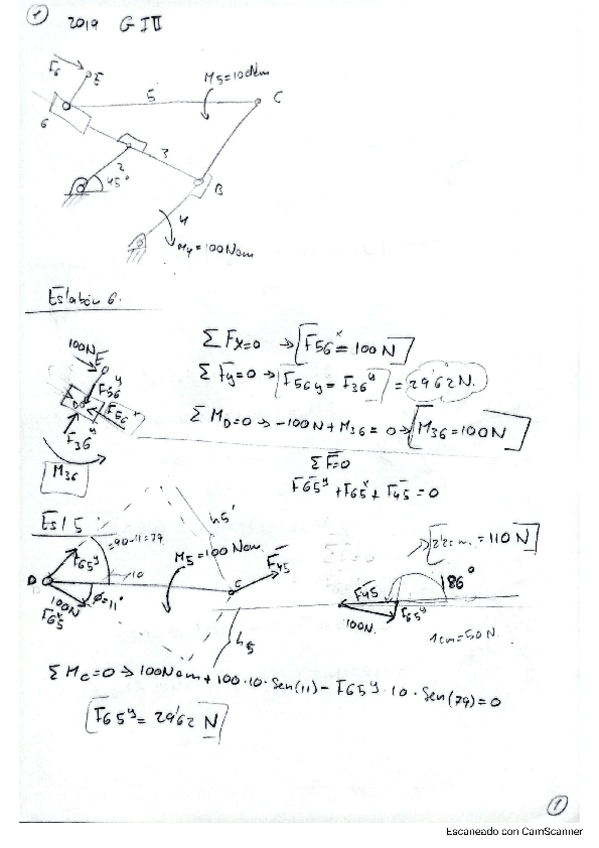 1 2019 GITI
F6
E
M5=100Nm
5
C
6
3
2
45°
B
4
M4=100Ncm
Eslabón 6.
100N E
F56 y
D F56 x
F36 y
M36
ΣFx=0 → F56 x = 100N
ΣFy=0 → F56y = F36 y = 29'62N.
ΣMD=0 → -100N + M36 = 0 → M36=100N
ΣF=0
F65 y + F65 x + F45 = 0
Esl 5
h5'
=90-11=79
F65 y
M5=100Ncm.
F45
D
10
C
100N
F65 x
φ=11°
h5
2'2cm. = 110N
F45
186°
100N.
F65 y
1cm=50N.
ΣMC=0 → 100Ncm + 100·10·Sen(11) - F65 y·10·Sen(79)=0
F65 y = 29'62 N
1
Escaneado con CamScanner